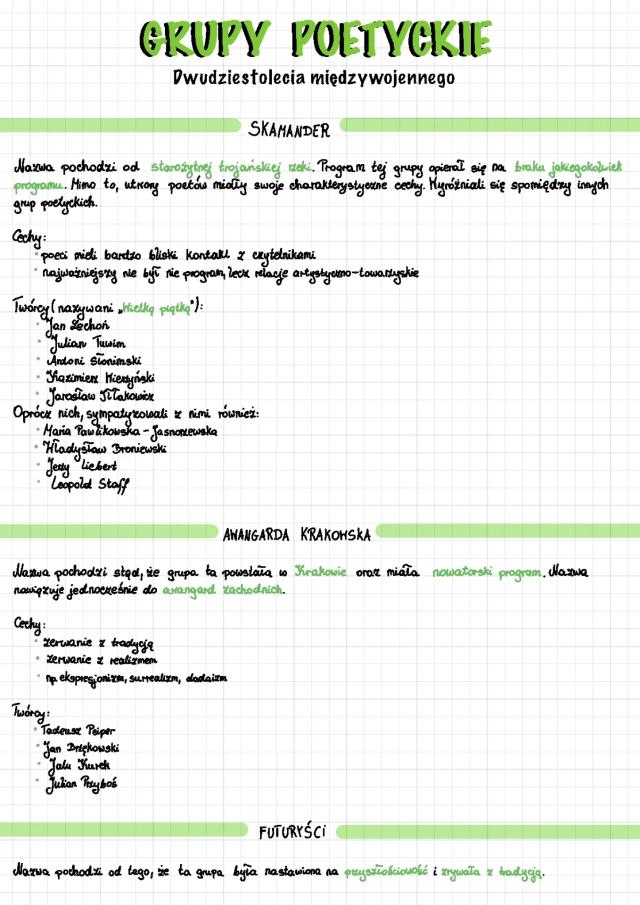 GRUPY POETYCKIE
Dwudziestolecia międzywojennego
SKAMANDER
Nazwa pochodzi od starożytnej trojańskiej rzeki. Program tej grupy opierał się na braku jakiegokolwiek
programu. Mimo to, utwory poetów miały swoje charakterystyczne cechy. Wyróżniali się spomiędzy innych
grup poetyckich.
Cechy:
• poeci mieli bardzo bliski kontakt z czytelnikami
• najważniejszy nie był nie program, lecz relacje artystyczno-towarzyskie
Twórcy (nazywani „Wielką piątką"):
• Jan Lechoń
• Julian Tuwim
• Antoni Słonimski
• Kazimierz Wierzyński
• Jarosław Iwaszkiewicz
Oprócz nich, sympatyzowali z nimi również:
• Maria Pawlikowska - Jasnorzewska
• Władysław Broniewski
• Jerzy Liebert
• Leopold Staff
AWANGARDA KRAKOWSKA
Nazwa pochodzi stąd, że grupa ta powstała w Krakowie oraz miała nowatorski program. Nazwa
nawiązuje jednocześnie do awangard zachodnich.
Cechy:
• zerwanie z tradycją
• zerwanie z realizmem
• np. ekspresjonizm, surrealizm, dadaizm
Twórcy:
• Tadeusz Peiper
• Jan Brzękowski
• Jalu Kurek
• Julian Przyboś
FUTURYŚCI
Nazwa pochodzi od tego, że ta grupa była nastawiona na przyszłościowość i zrywała z tradycją.